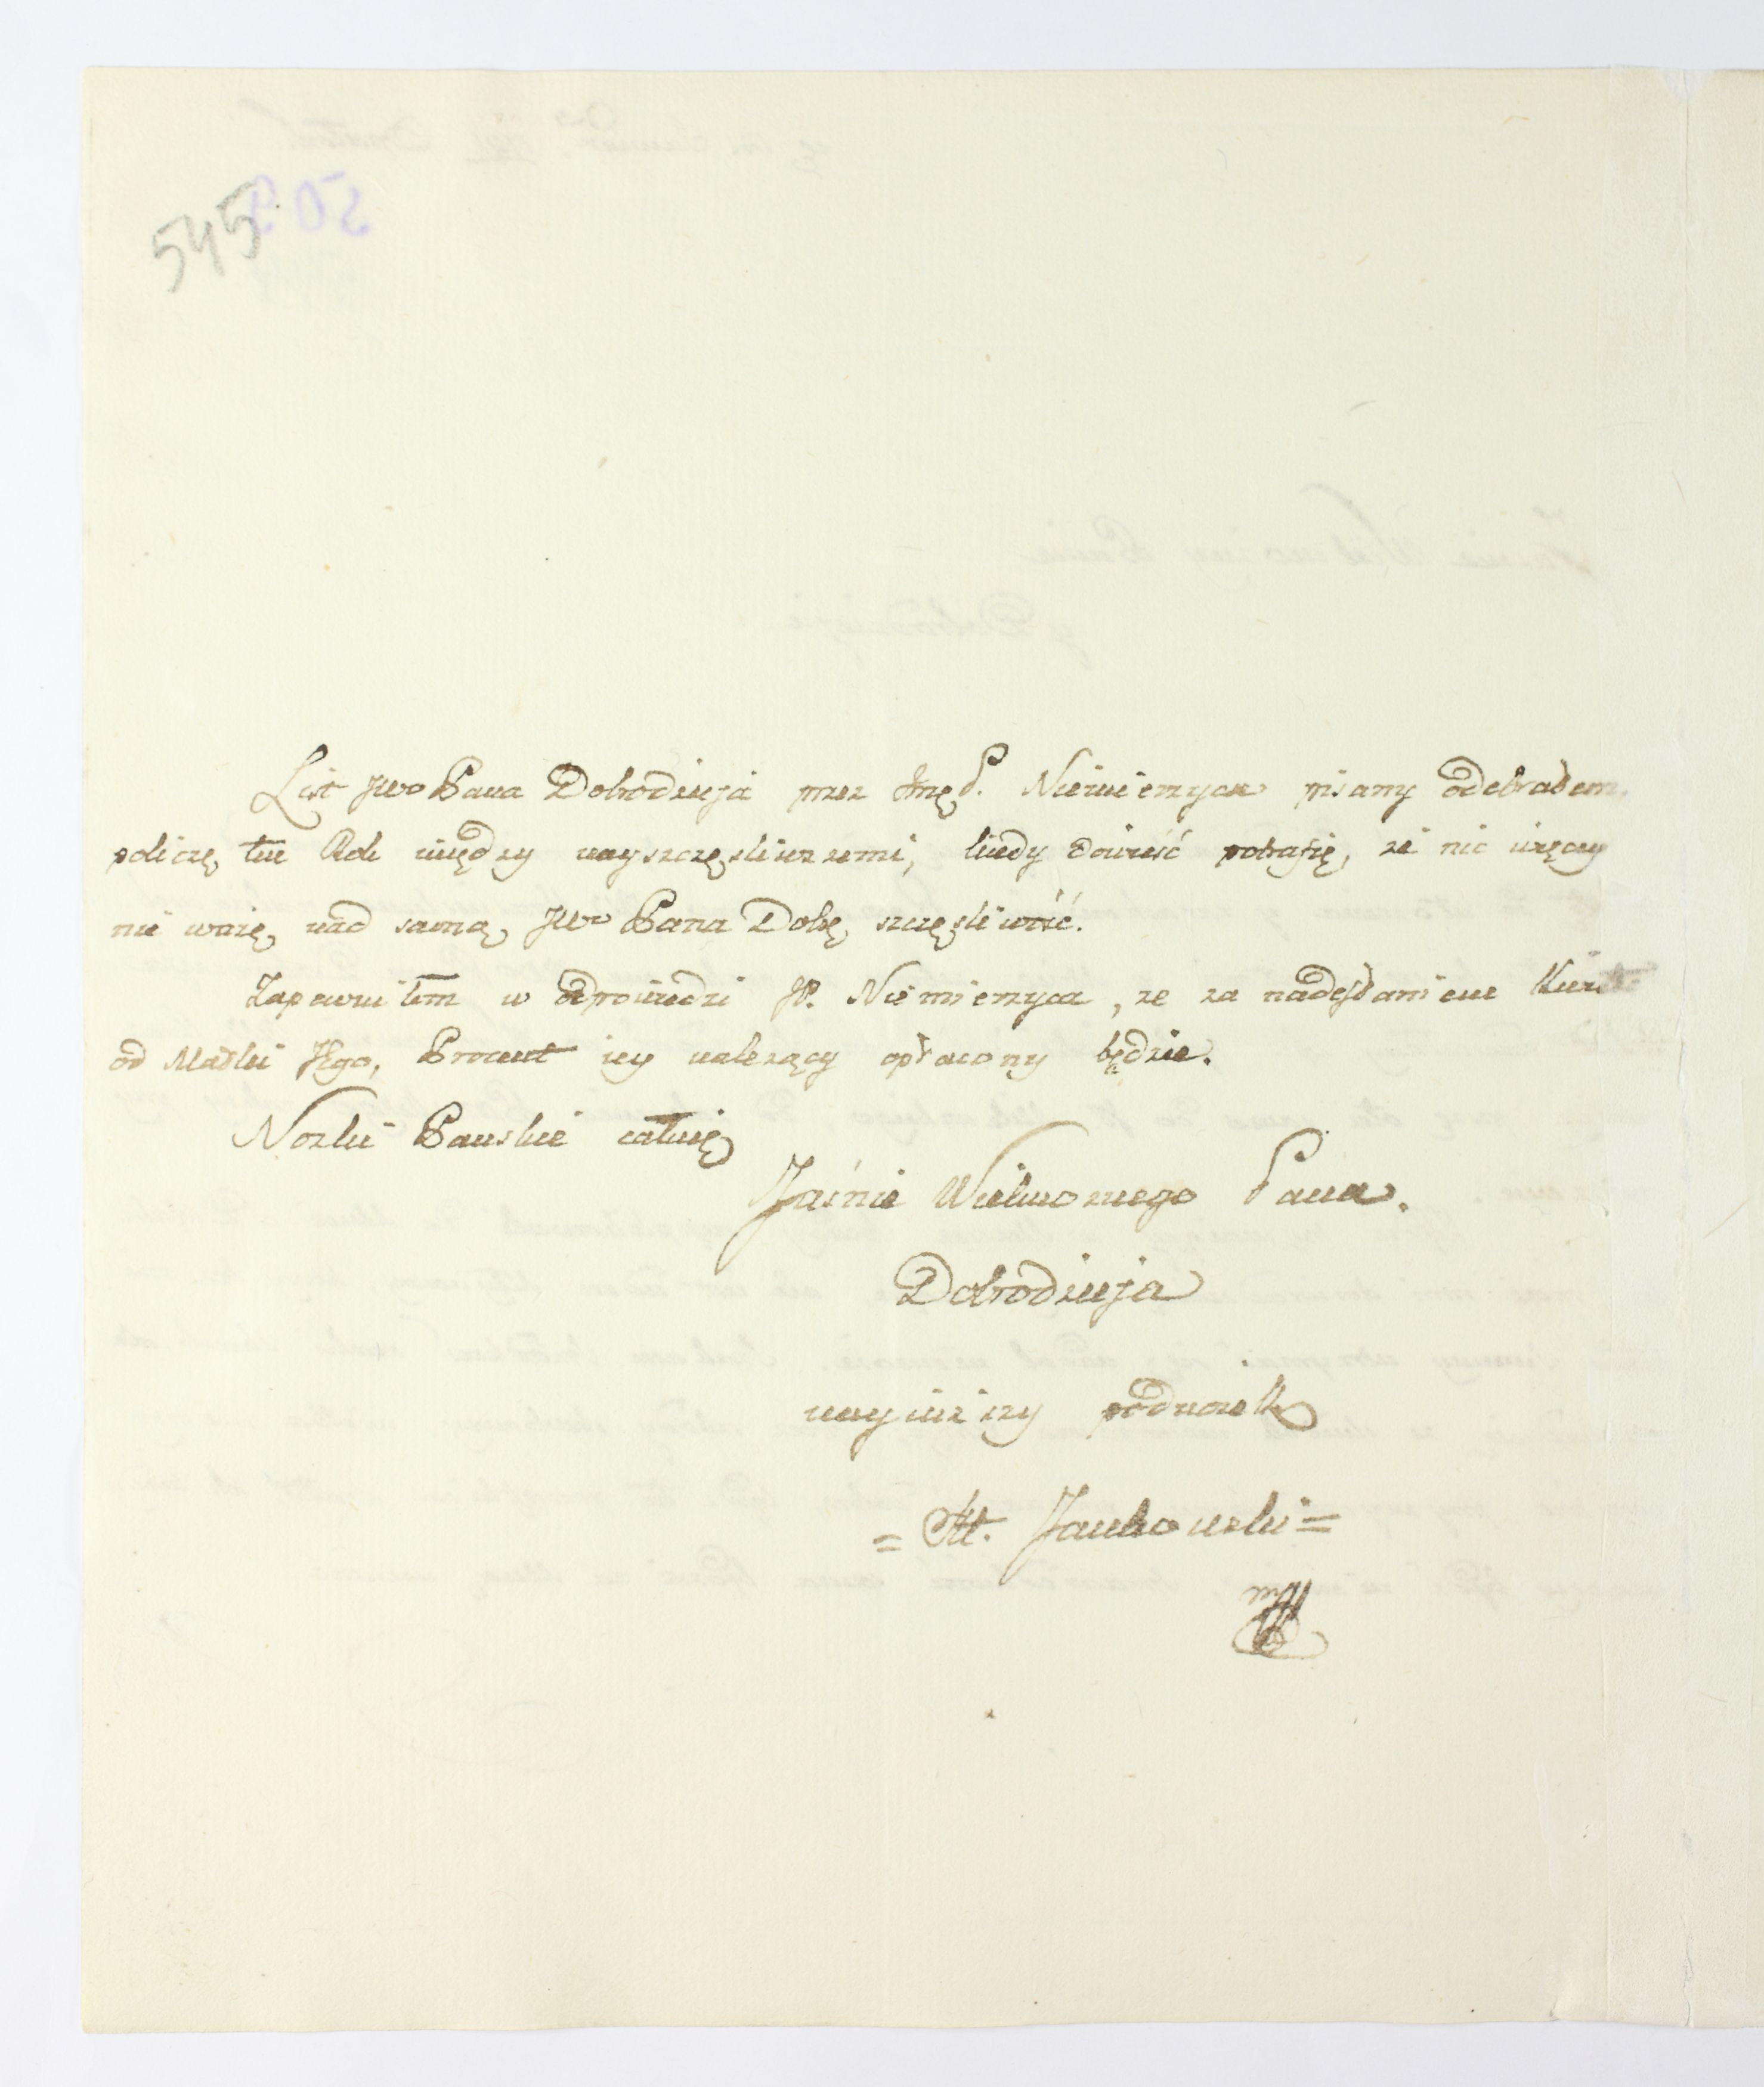 545
List JWo Pana Dobrodzieja przez Jmę P. Niemierzyca pisany odebrałem.
policzę ten Rok między nayszczęśliwszemi, kiedy dowieść potrafię, że nic więcey
nie ważę, nad samą JWo Pana Dobę szczęśliwość.
Zapewniłem w odpowiedzi JP. Niemierzyca, ze za nadesłaniem
od Matki Jego, Procent iey należący opłacony będzie.
Nozki Panskie całuię
Jaśnie Wielmoznego Pana.
Dobrodzieja
nayniższy podnożek
= St. Jankowski =
mp